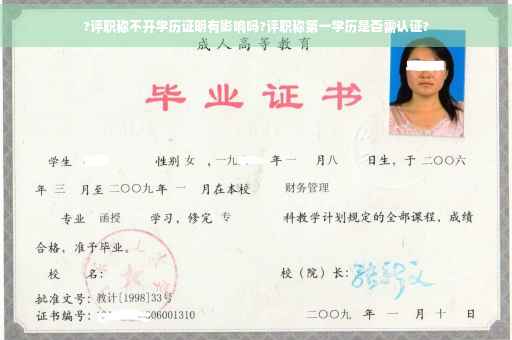 ?评职称不开学历证明有影响吗?评职称第一学历是否需认证?
成人高等教育
毕业证书
学生 性别 女 ,一九 年 一 月 八 日生,于 二〇〇六
年 三 月至 二〇〇九 年 一 月在本校 财务管理
专业 函授 学习,修完 专 科教学计划规定的全部课程,成绩
合格,准予毕业。
校 名: 校(院)长:
批准文号:教计[1998]33号
证书编号: 06001310 二〇〇九 年 一 月 十 日